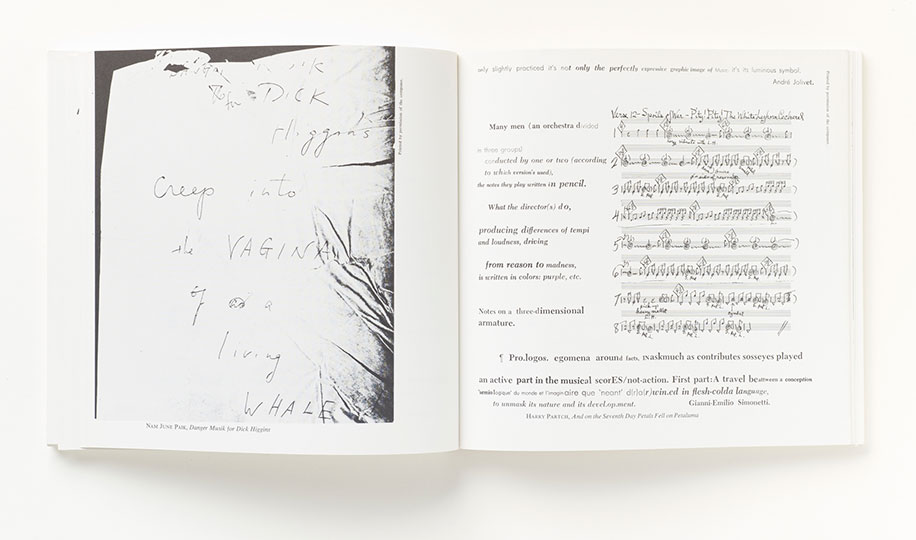 for DICK
Higgins
Creep into
the VAGINA
of a
living
WHALE
NAM JUNE PAIK, Danger Musik for Dick Higgins
Printed by permission of the composer.
only slightly practiced it's not only the perfectly expressive graphic image of Music, it's its luminous symbol.
André Jolivet.
Many men (an orchestra divided
in three groups)
conducted by one or two (according
to which version's used),
the notes they play written in pencil.
What the director(s) do,
producing differences of tempi
and loudness, driving
from reason to madness,
is written in colors: purple, etc.
Notes on a three-dimensional
armature.
Verse 12 - Spirits of War - Pity! Pity! The White Leghorn Cockerel
1
2
3
4
5
6
7
8
Printed by permission of the composer.
¶ Pro.logos. egomena around facts, INaskmuch as contributes sosseyes played
an active part in the musical scorES/not-action. First part:A travel beattween a conception
'semiologique' du monde et l'imaginaire que 'neant' di(o)(r)/win.ed in flesh-colda language,
to unmask its nature and its devel.op.ment. Gianni-Emilio Simonetti.
HARRY PARTCH, And on the Seventh Day Petals Fell on Petaluma